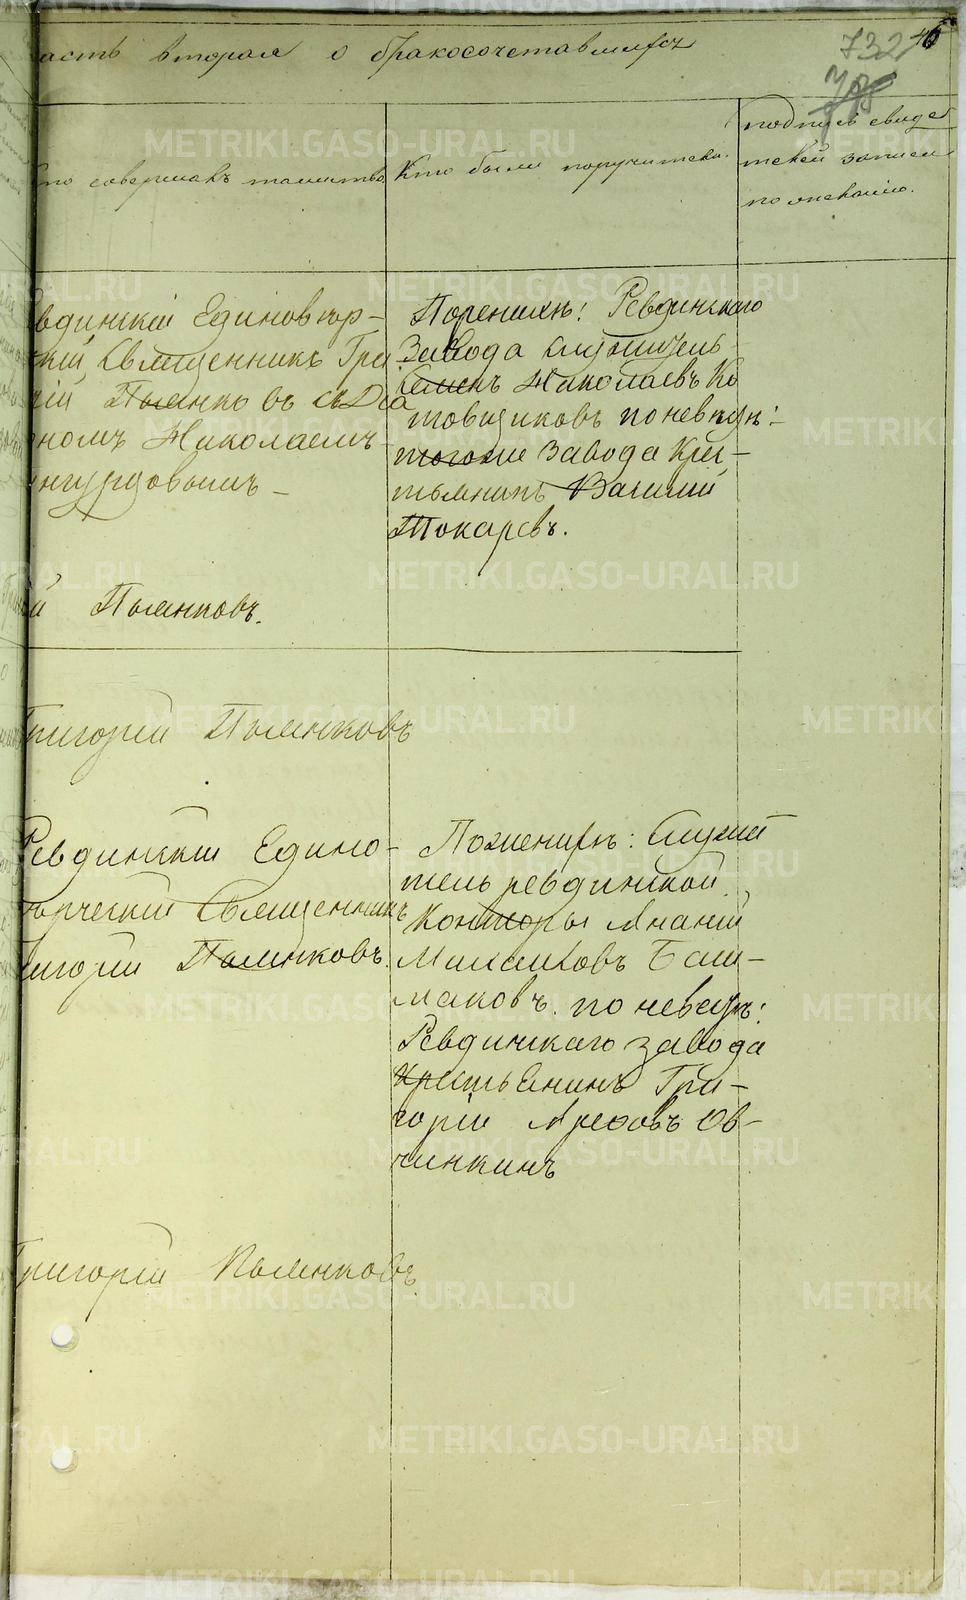 асть вторая о бракосочетавшихся
732
46
то совершалъ таинство
Кто были поручители.
подпись свидѣ
телей записи
по желанію.
вдинскій Единовѣр-
кій Священникъ Гри
рій Пьянко въ съ Діа
ономъ Николаемъ
й Пьянковъ.
По женихѣ: Ревдинскаго
Завода служитель
Семенъ Николаевъ Ко
товщиковъ по невѣстѣ:
тогоже завода Кре-
стьянинъ Василій
Токаревъ.
Григорій Пьянковъ
Ревдинскій Едино-
вѣрческій Священникъ
ригорій Пьянковъ.
По женихѣ: Служи
тель ревдинской
Конторы Ананій
Михайловъ Баш-
маковъ. по невѣстѣ:
Ревдинскаго завода
Крестьянинъ Гри-
горій Арефовъ Ов-
чинкинъ
Григорій Пьянковъ
METRIKI.GASO-URAL.RU